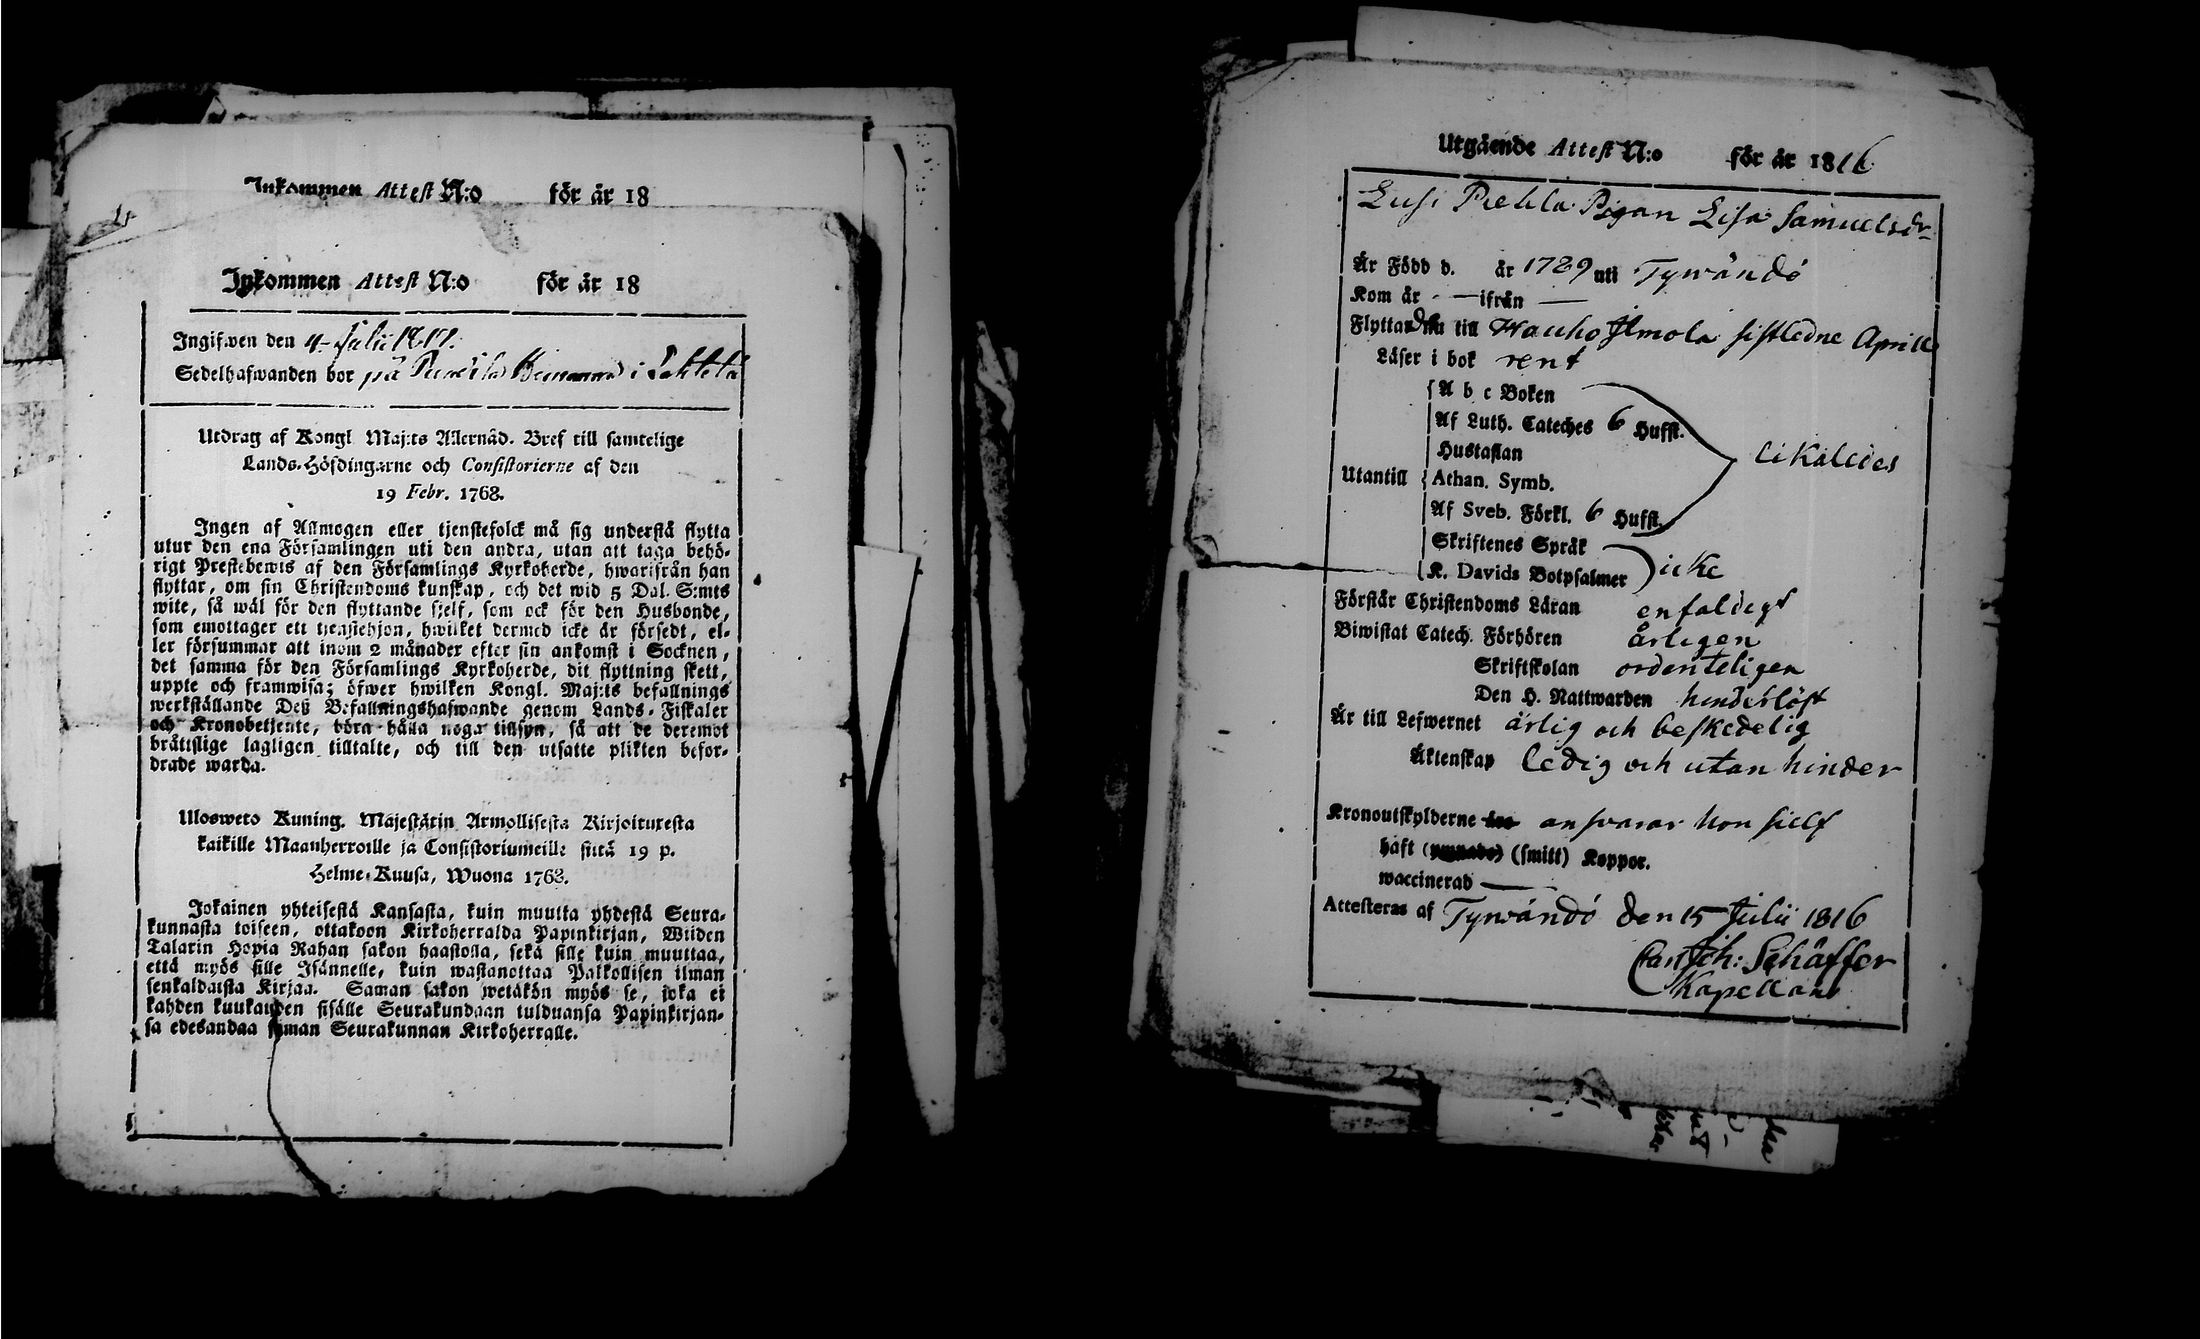 Inkommen Attest N:o för år 18
Inkommen Attest N:o för år 18
Ingifwen den 4 Julii
Sedelhafwanden bor på i
Utdrag af Kongl. Maj:ts Allernåd. Bref till samtelige
Lands-Höfdingarne och Consistorierne af den
19 Febr. 1768.
Ingen af Allmogen eller tjenstefolck må sig understå flytta
utur den ena Församlingen uti den andra, utan att taga behö-
rigt Prestebewis af den Församlings Kyrkoherde, hwarifrån han
flyttar, om sin Christendoms kunskap, och det wid 5 Dal. S:mts
wite, så wäl för den flyttande sjelf, som ock för den Husbonde,
som emottager ett tjenstehjon, hwilket dermed icke är försedt, el-
ler försummar att inom 2 månader efter sin ankomst i Socknen,
det samma för den Församlings Kyrkoherde, dit flyttning skett,
uppte och framwisa; öfwer hwilken Kongl. Maj:ts befallnings
werkställande Deß Befallningshafwande genom Lands-Fiskaler
och Kronobetjente, böra hålla noga tillsyn, så att de deremot
bråttslige lagligen tilltalte, och till den utsatte plikten befor-
drade warda.
Ulosweto Kuning. Majestätin Armollisesta Kirjoituxesta
kaikille Maanherroille ja Consistoriumeille siitä 19 p.
Helme-Kuusa, Wuona 1768.
Jokainen yhteisestä Kansasta, kuin muutta yhdestä Seura-
kunnasta toiseen, ottakoon Kirkoherralda Papinkirjan, Wiiden
Talarin Hopia Rahan sakon haastolla, sekä sille kuin muuttaa,
että myös sille Isännelle, kuin wastanottaa Palkollisen ilman
senkaldaista Kirjaa. Saman sakon wetäkön myös se, joka ei
kahden kuukauden sisälle Seurakundaan tulduansa Papinkirjan-
sa edesandaa saman Seurakunnan Kirkoherralle.
Utgående Attest N:o för år 1816
Lusi Pekla Pigan Lisa Samuelsdr
Är Född d. år 1789 uti Tyrwändö
Kom år — ifrån —
Flyttade till Hauho Ilmola sistledne Aprill
Läser i bok rent
A b c Boken
Af Luth. Cateches 6 Hufst.
Hustaflan
likaledes
Utantill Athan. Symb.
Af Sveb. Förkl. 6 Hufst.
Skriftenes Språk
K. Davids Botpsalmer icke
Förstår Christendoms Läran enfaldigt
Biwistat Catech. Förhören årligen
Skriftskolan ordenteligen
Den H. Nattwarden hinderlöst
Är till Lefwernet ärlig och beskedelig
Äktenskap ledig och utan hinder
Kronoutskylderne ansvarar hon sielf
haft (smitt) Koppor.
waccinerad —
Attesteras af Tyrwändö den 15 Julii 1816
Joh: Schäffer
Kapellan